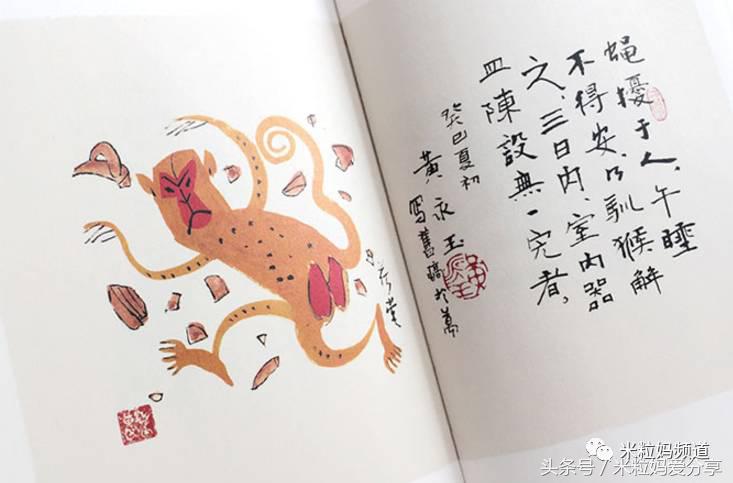 蝇擾于人，午睡
不得安，乃馴猴解
之，三日内，室内器
皿陳設無一完者，
癸巳夏初
黄永玉
寫舊稿於萬
荷堂
米粒妈频道
头条号／米粒妈爱分享